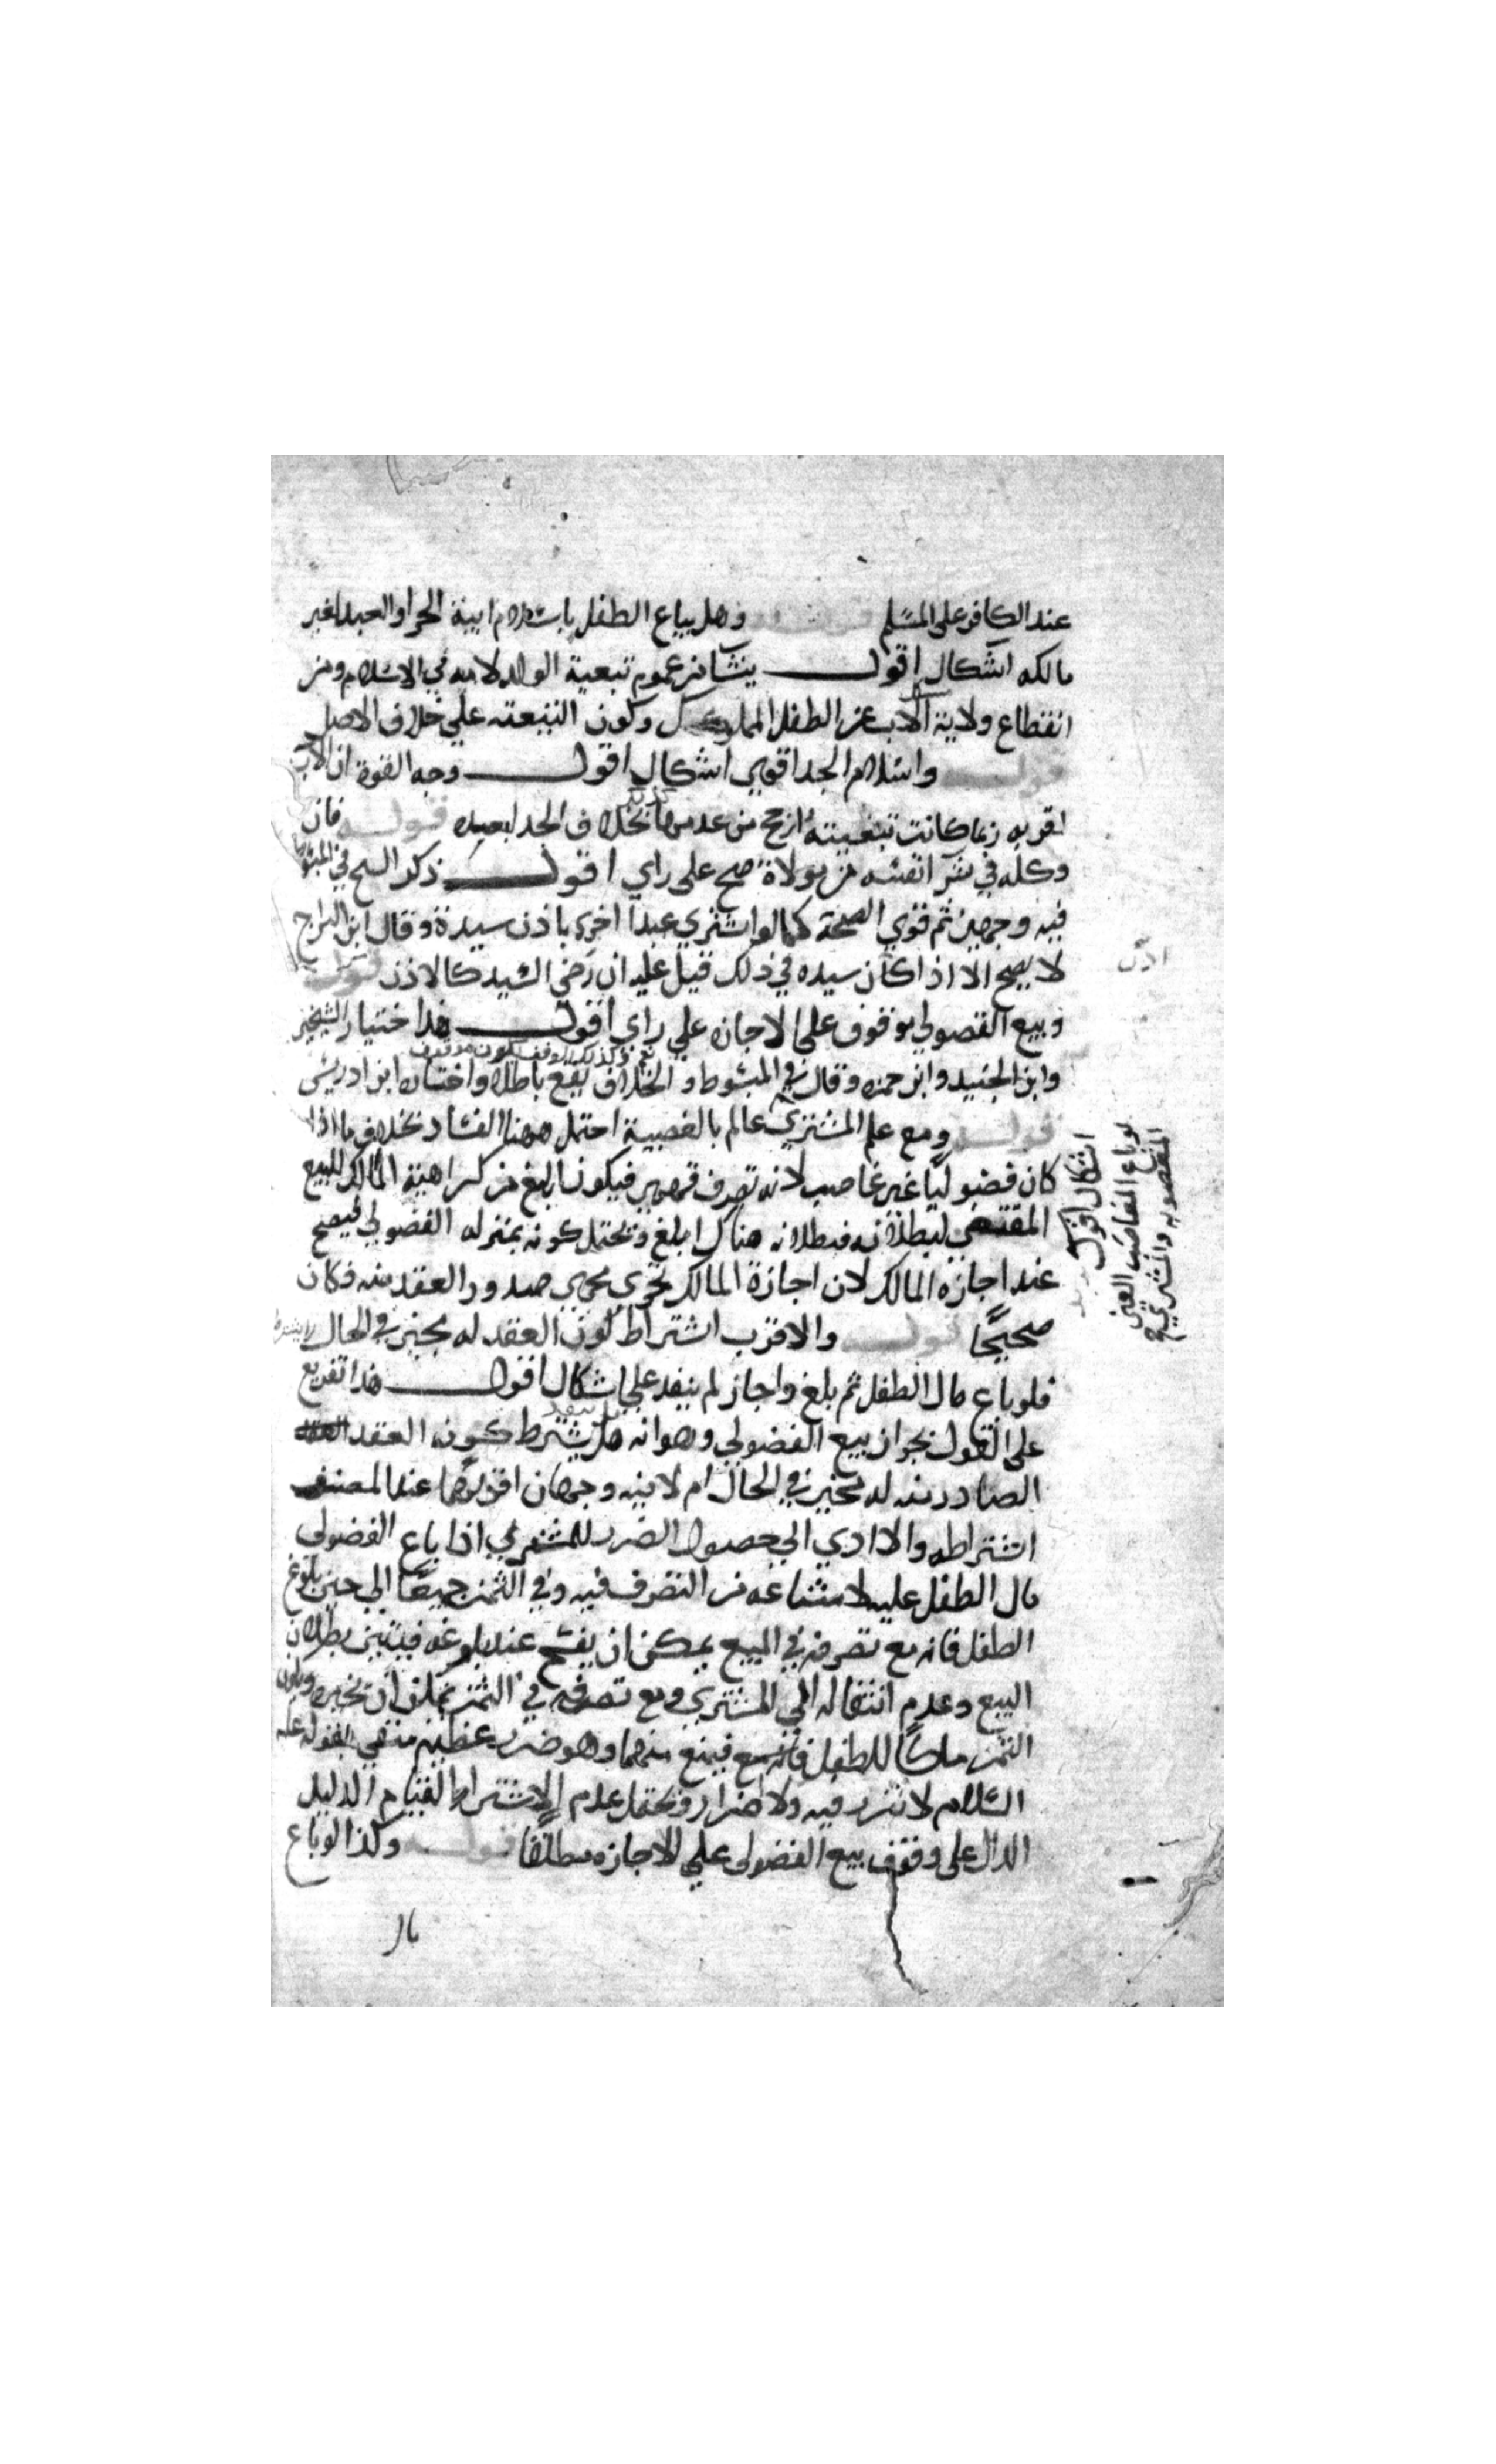 عند الكافر على المسلم قوله وهل يباع الطفل باسلام ابيه الحر او العبد لغير
مالكه اشكال اقول ينشا من عموم تبعية الولد لابيه في الاسلام ومن
انقطاع ولاية الاب عن الطفل المملوك وكون التبعية على خلاف الاصل
قوله واسلام الجد اقوى اشكال اقول وجه القوة ان الاب
اقربه ربما كانت تبعيته ارجح من عدمها بخلاف الجد لبعده قوله فان
وكله في شرا نفسه من مولاه صح على راي اقول ذكر الشيخ في المبسوط
فيه وجهين ثم قوي الصحة كما لو اشترى عبدا اخر باذن سيده وقال ابن البراج
لا يصح الا اذا كان سيده في ذلك قيل عليه ان رضى السيد كالاذن قوله
اذن
وبيع الفضولي موقوف على الاجازه على راي اقول هذا اختيار الشيخين
وابن الجنيد وابن حمزه وقال في المبسوط و الخلاف يقع باطلا واختاره ابن ادريس
قوله ومع علم المشتري عالم بالغصبية احتمل ههنا الفساد بخلاف ما اذا
كان فضوليا غير غاصب لانه تصرف قهري فيكون ابلغ من كراهية المالك للبيع
المقتضي لبطلانه فبطلانه هناك ابلغ ويحتمل كونه بمنزله الفضولي فيصح
عند اجازه المالك لان اجازة المالك تجري مجرى صدور العقد منه فكان
صحيحا قوله والاقرب اشتراط كون العقد له مجيز في الحال
اشكال اقول
لو باع الغاصب العين
المغصوبه والمشتري
فلو باع مال الطفل ثم بلغ واجاز لم ينفد على اشكال اقول هذا تفريع
على القول بجواز بيع الفضولي وهو انه هل يشترط كون العقد
الصادر منه له مجيز في الحال ام لا فيه وجهان اقربهما عند المصنف
اشتراطه والا ادى الى حصول الضرر للمشتري اذا باع الفضولي
مال الطفل عليه لامتناعه من التصرف فيه وفي الثمن جميعا الى حين بلوغ
الطفل فانه مع تصرفه في المبيع يمكن ان يفسخ عند بلوغه فيتبين بطلان
البيع وعدم انتقاله الى المشتري ومع تصرفه في الثمن يمكن ان يجيزه ويكون
الثمن ملكا للطفل فيمنع منهما وهو ضرر عظيم منفي بقوله عليه
السلام لا ضرر فيه ولا اضرار ويحتمل عدم الاشتراط لقيام الدليل
الدال على وقوف بيع الفضولي على الاجازه مطلقا قوله وكذا لو باع
مال